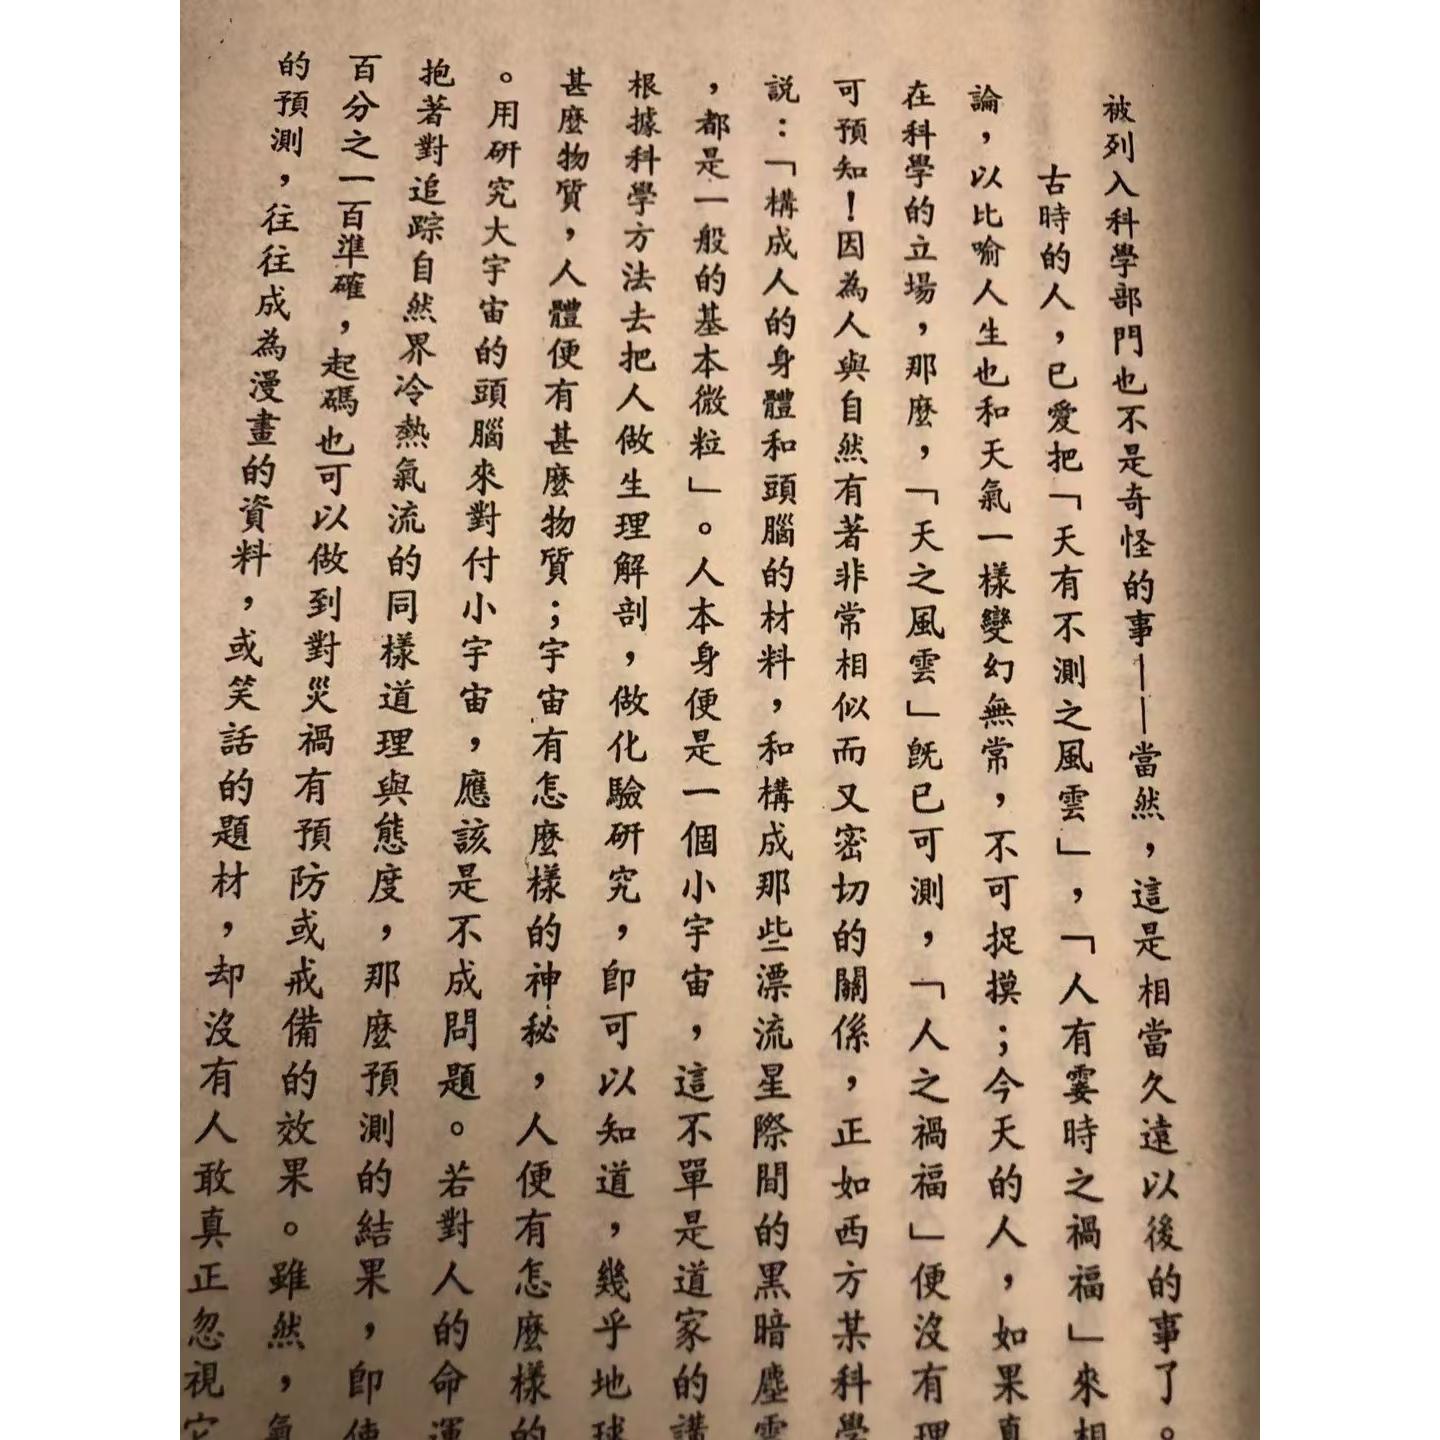 被列入科學部門也不是奇怪的事——當然，這是相當久遠以後的事了。
古時的人，已愛把「天有不測之風雲」，「人有霎時之禍福」來相
論，以比喻人生也和天氣一樣變幻無常，不可捉摸；今天的人，如果真
在科學的立場，那麼，「天之風雲」既已可測，「人之禍福」便沒有理
可預知！因為人與自然有著非常相似而又密切的關係，正如西方某科學
說：「構成人的身體和頭腦的材料，和構成那些漂流星際間的黑暗塵雲
，都是一般的基本微粒」。人本身便是一個小宇宙，這不單是道家的講
根據科學方法去把人做生理解剖，做化驗研究，即可以知道，幾乎地球
甚麼物質，人體便有甚麼物質；宇宙有怎麼樣的神秘，人便有怎麼樣的
。用研究大宇宙的頭腦來對付小宇宙，應該是不成問題。若對人的命運
抱著對追踪自然界冷熱氣流的同樣道理與態度，那麼預測的結果，即使
百分之一百準確，起碼也可以做到對災禍有預防或戒備的效果。雖然，氣
的預測，往往成為漫畫的資料，或笑話的題材，却沒有人敢真正忽視它